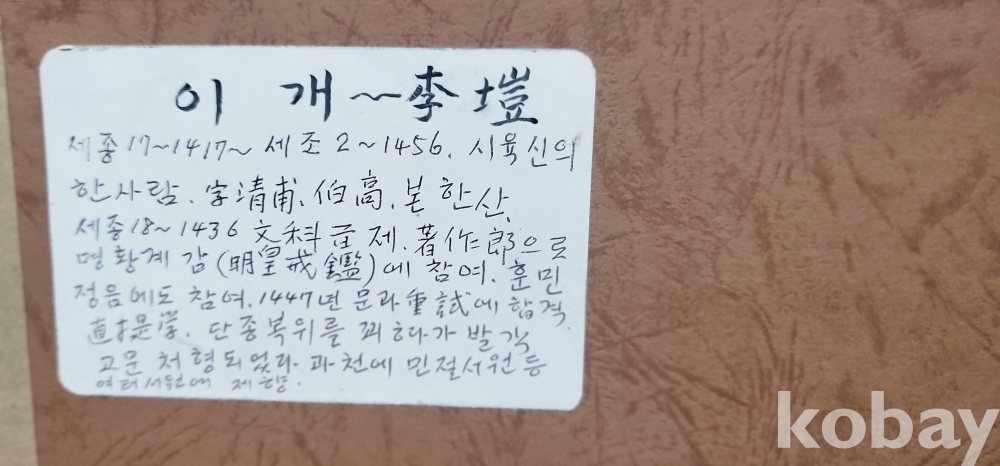 이 개~李塏
세종17~1417~ 세조 2~1456. 시육신의
한사람. 字淸甫. 伯高. 본 한산.
세종18~1436 文科급제. 著作郎으로
명황계감(明皇戒鑑)에 참여. 훈민
정음에도 참여. 1447년 문과重試에 합격.
直提学. 단종복위를 꾀하다가 발각
고문 처형되었다. 과천에 민절서원등
여러서원에 제향.
kobay